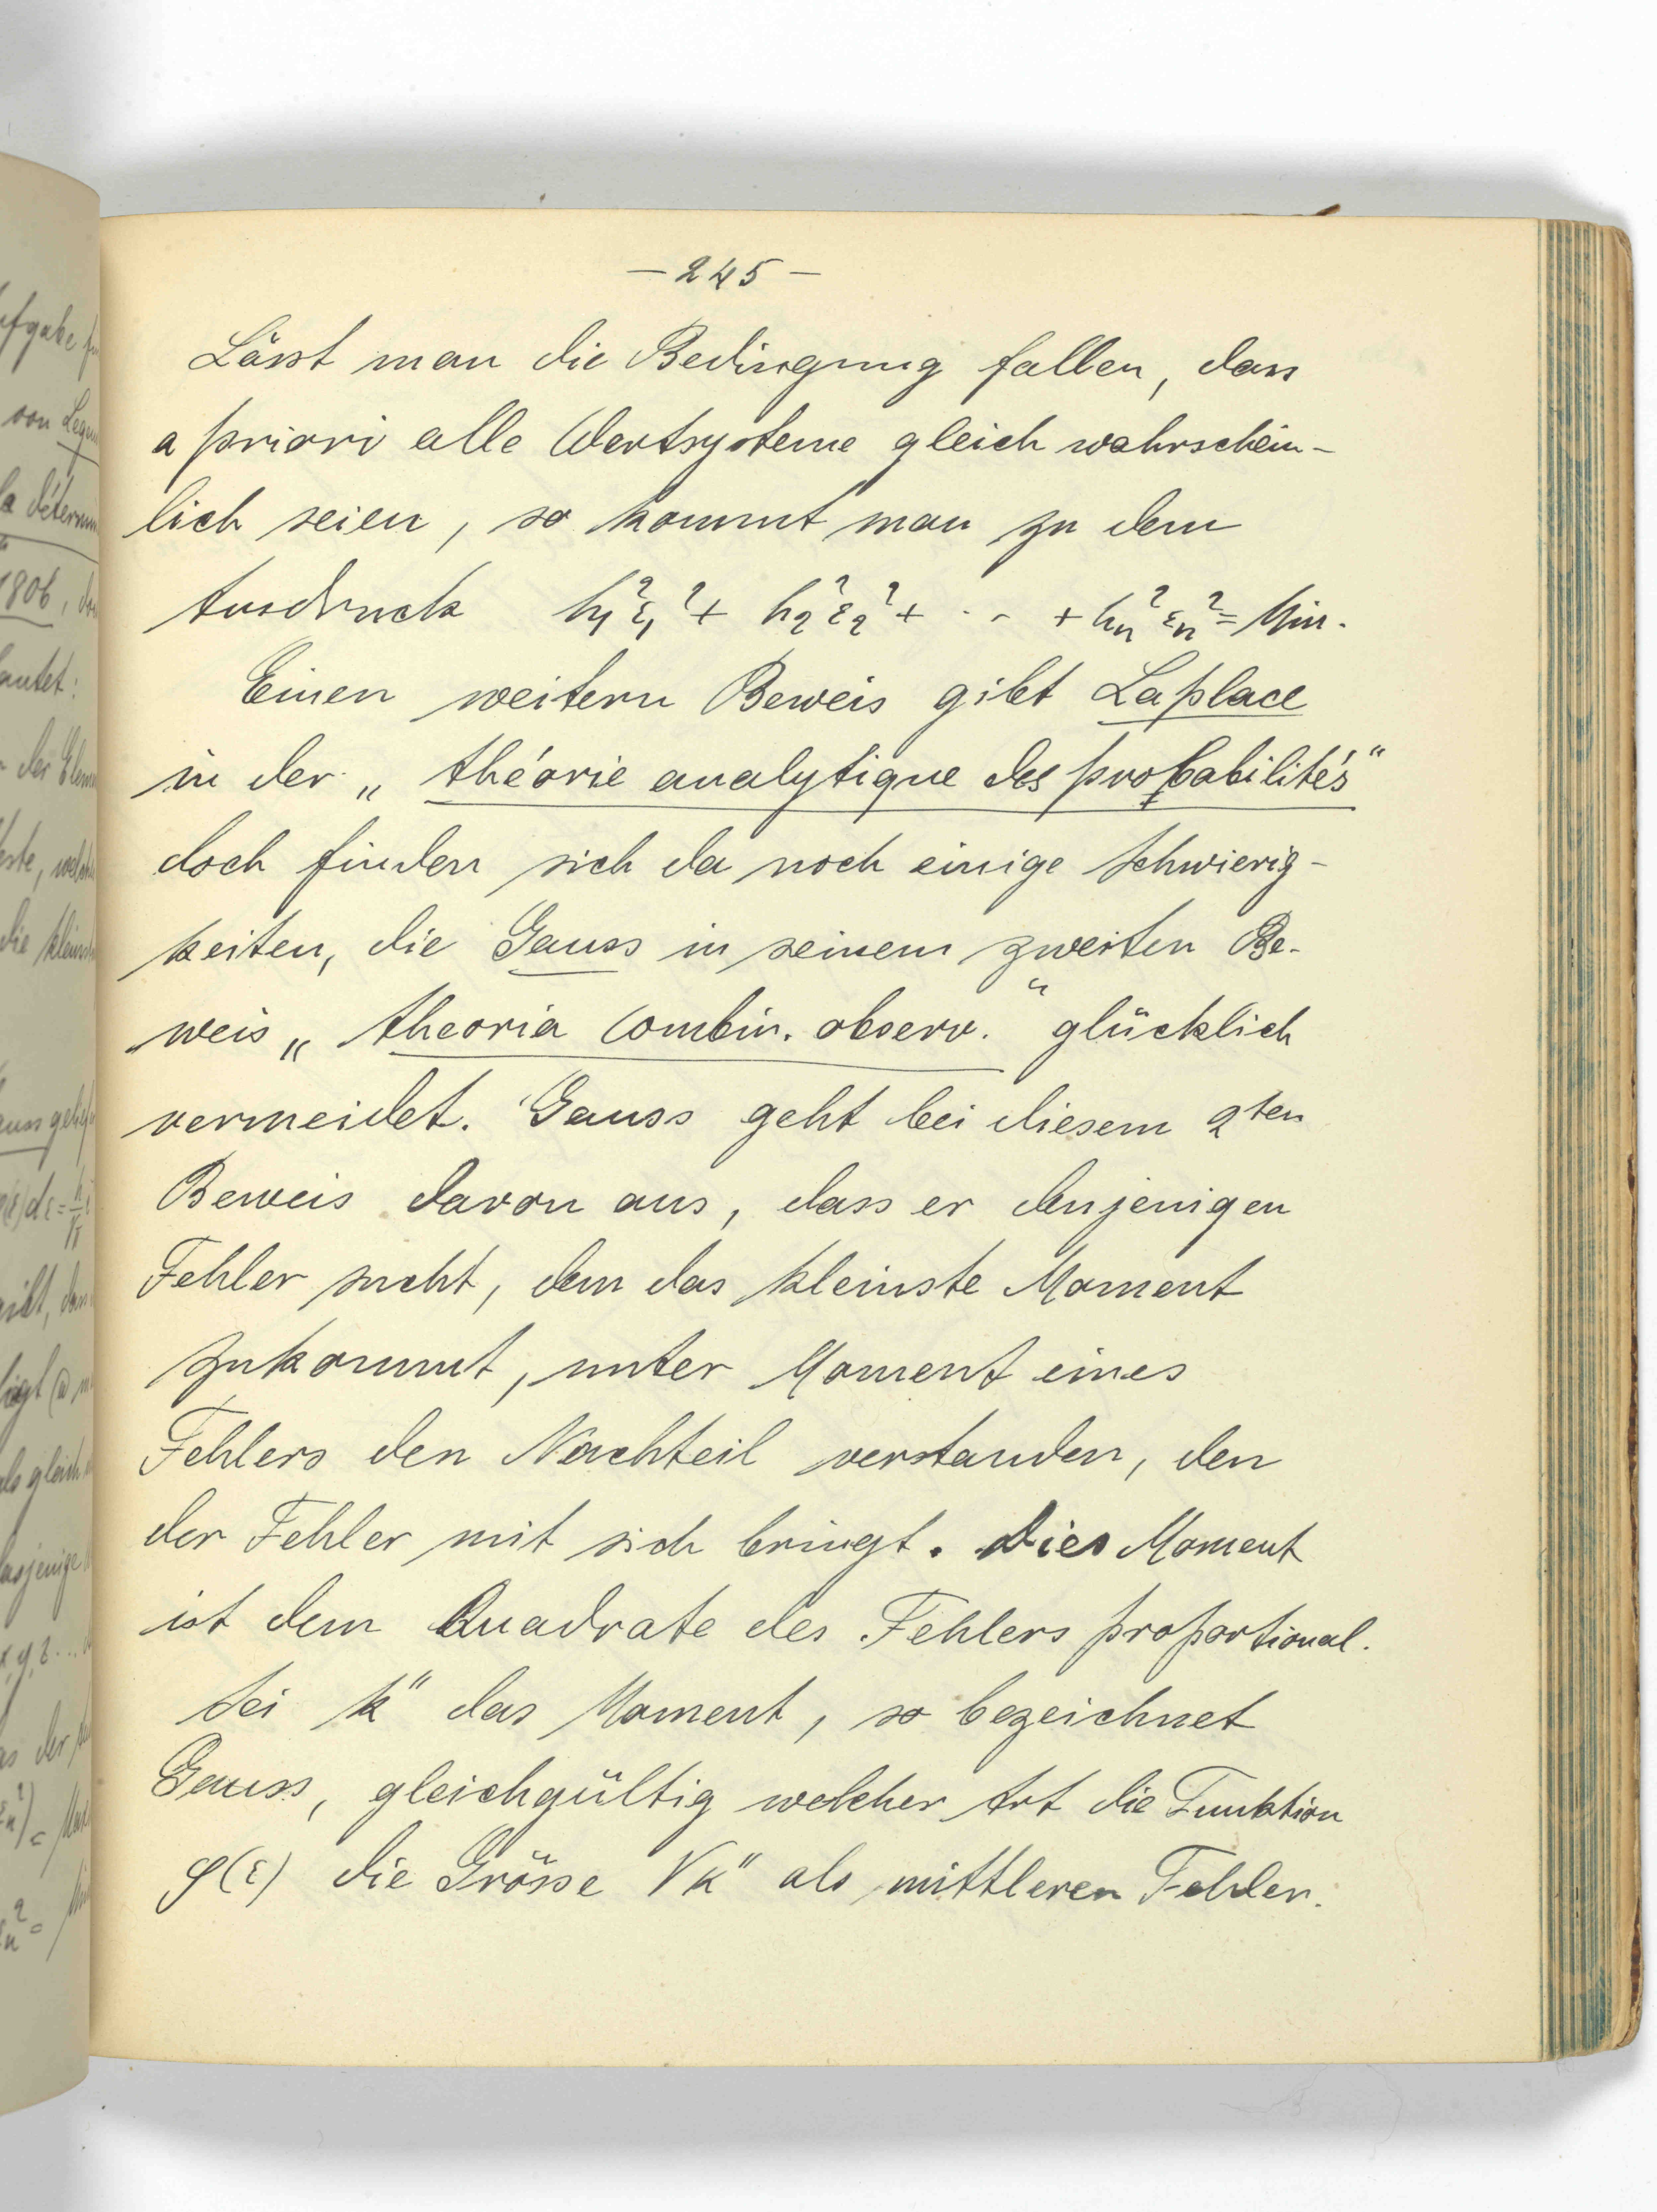 – 245 –
Lässt man die Bedingung fallen, dass
a priori alle Wertsysteme gleich wahrschein-
lich seien, so kommt man zu dem
Ausdruck h₁²ε₁² + h₂²ε₂² + · · + hₙ²εₙ² = Min.
Einen weitern Beweis gibt Laplace
in der „théorie analytique des probabilités“
doch finden sich da noch einige Schwierig-
keiten, die Gauss in seinem zweiten Be-
weis „theoria Combin. observ.“ glücklich
vermeidet. Gauss geht bei diesem 2ten
Beweis davon aus, dass er denjenigen
Fehler sucht, dem das kleinste Moment
zukommt, unter Moment eines
Fehlers den Nachteil verstanden, den
der Fehler mit sich bringt. Dies Moment
ist dem Quadrate des Fehlers proportional.
Sei k" das Moment, so bezeichnet
Gauss, gleichgültig welcher Art die Funktion
φ(ε) die Grösse √k" als mittleren Fehler.